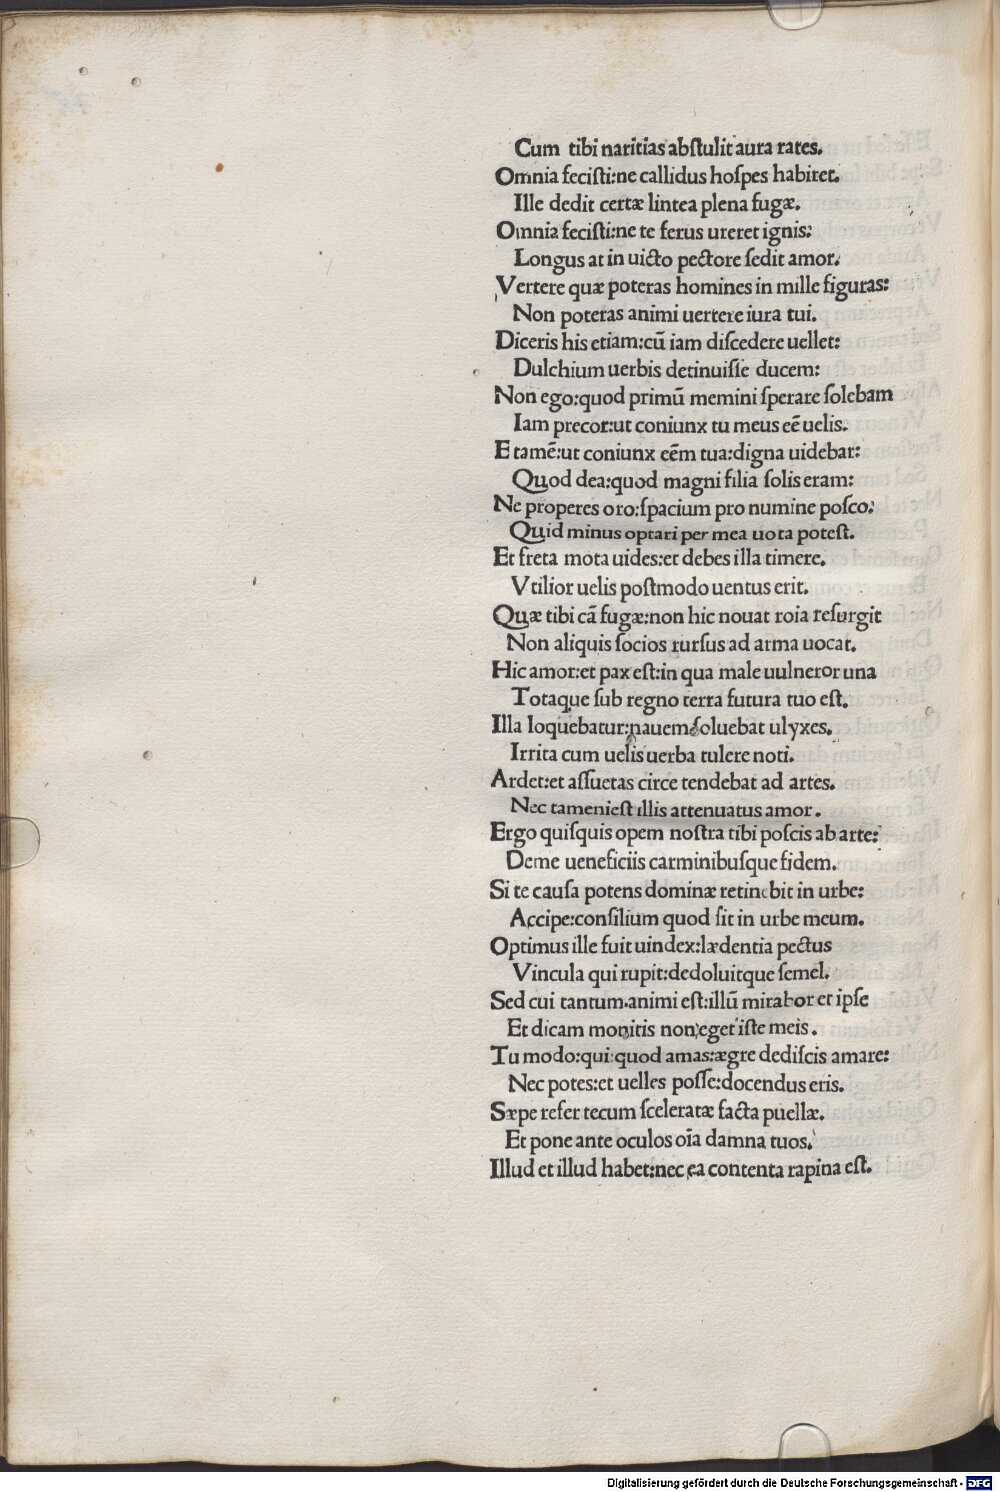 Cum tibi naritias abſtulit aura rates.
Omnia feciſti:ne callidus hoſpes habiret.
Ille dedit certæ lintea plena fugæ.
Omnia feciſti:ne te ferus ureret ignis:
Longus at in uicto pectore ſedit amor.
Vertere quæ poteras homines in mille figuras:
Non poteras animi uertere iura tui.
Diceris his etiam:cū iam diſcedere uellet:
Dulchium uerbis detinuiſſe ducem:
Non ego:quod primū memini ſperare ſolebam
Iam precor:ut coniunx tu meus eē uelis.
E tamē:ut coniunx eēm tua:digna uidebar:
Quod dea:quod magni filia ſolis eram:
Ne properes oro:ſpacium pro numine poſco:
Quid minus optari per mea uota poteſt.
Et freta mota uides:et debes illa timere.
Vtilior uelis poſtmodo uentus erit.
Quæ tibi cā fugæ:non hic nouat roia reſurgit
Non aliquis ſocios rurſus ad arma uocat.
Hic amor:et pax eſt:in qua male uulneror una
Totaque ſub regno terra futura tuo eſt.
Illa loquebatur:nauem ſoluebat ulyxes.
Irrita cum uelis uerba tulere noti.
Ardet:et aſſuetas circe tendebat ad artes.
Nec tamenieſt illis attenuatus amor.
Ergo quiſquis opem noſtra tibi poſcis ab arte:
Deme ueneficiis carminibuſque fidem.
Si te cauſa potens dominæ retinebit in urbe:
Accipe:conſilium quod ſit in urbe meum.
Optimus ille fuit uindex:lædentia pectus
Vincula qui rupit:dedoluitque ſemel.
Sed cui tantum.animi eſt:illū mirabor et ipſe
Et dicam monitis non eget iſte meis.
Tu modo:qui:quod amas:ægre dediſcis amare:
Nec potes:et uelles poſſe:docendus eris.
Sæpe refer tecum ſceleratæ facta puellæ.
Et pone ante oculos oīa damna tuos.
Illud et illud habet:nec ea contenta rapina eſt.
Digitalisierung gefördert durch die Deutsche Forschungsgemeinschaft - DFG